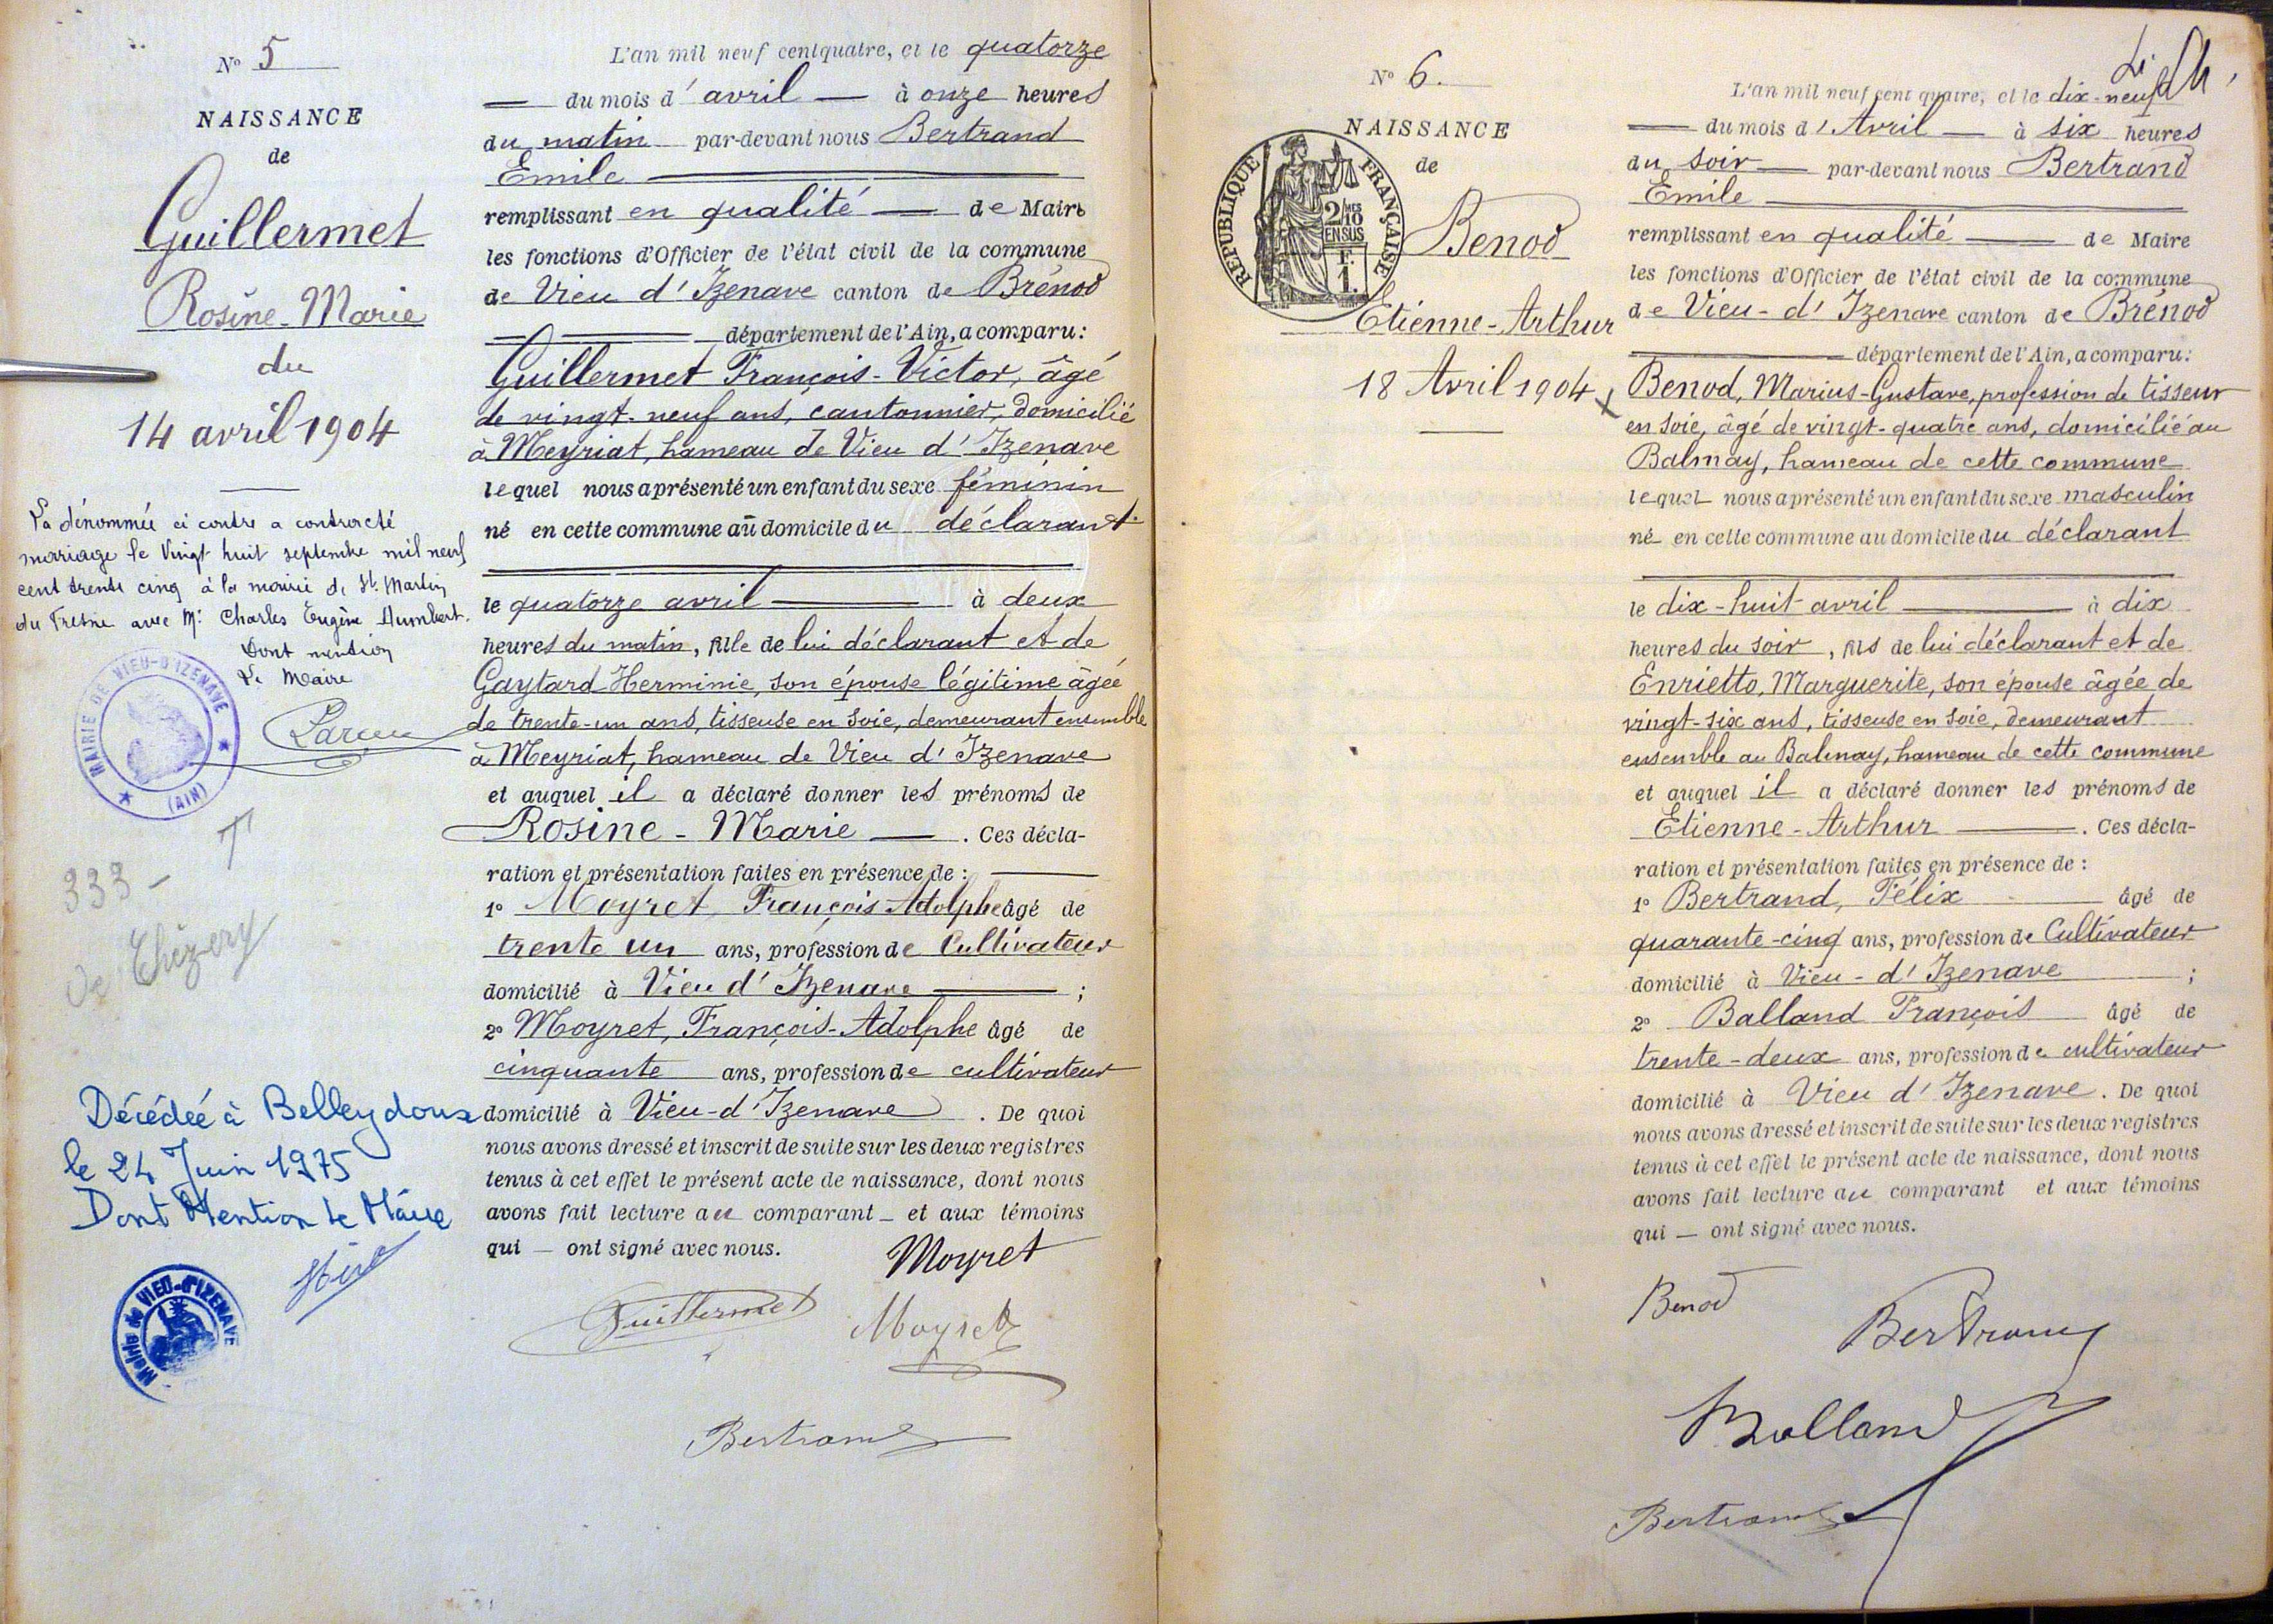 N° 5
NAISSANCE
de
Guillermet
Rosine-Marie
du
14 avril 1904
La dénommée ci contre a contracté
mariage le vingt huit septembre mil neuf
cent trente cinq à la mairie de St Martin
du Fresne avec Mr Charles Eugène Humbert.
Dont mention
Le Maire
MAIRIE DE VIEU-D'IZENAVE
(AIN)
333 - T
de Chézery
Décédée à Belleydoux
le 24 Juin 1975
Dont Mention Le Maire
Mairie de VIEU-d'IZENAVE
L'an mil neuf cent quatre, et le quatorze
du mois d'avril à onze heures
du matin par-devant nous Bertrand
Emile
remplissant en qualité de Maire
les fonctions d'Officier de l'état civil de la commune
de Vieu d'Izenave canton de Brénod
département de l'Ain, a comparu:
Guillermet François-Victor, âgé
de vingt-neuf ans, cantonnier, domicilié
à Meyriat, hameau de Vieu d'Izenave
lequel nous a présenté un enfant du sexe féminin
né en cette commune au domicile du déclarant.
le quatorze avril à deux
heures du matin, fille de lui déclarant et de
Gaytard Herminie, son épouse légitime âgée
de trente-un ans, tisseuse en soie, demeurant ensemble
à Meyriat, hameau de Vieu d'Izenave
et auquel il a déclaré donner les prénoms de
Rosine-Marie. Ces décla-
ration et présentation faites en présence de :
1° Moyret, François-Adolphe âgé de
trente un ans, profession de Cultivateur
domicilié à Vieu d'Izenave ;
2° Moyret, François-Adolphe âgé de
cinquante ans, profession de cultivateur
domicilié à Vieu-d'Izenave. De quoi
nous avons dressé et inscrit de suite sur les deux registres
tenus à cet effet le présent acte de naissance, dont nous
avons fait lecture au comparant et aux témoins
qui — ont signé avec nous.
Moyret
Guillermet Moyret
Bertrand
N° 6.
NAISSANCE
de
RÉPUBLIQUE FRANÇAISE
2/10 MES
EN SUS
F.
1.
Benod
Etienne-Arthur
18 Avril 1904
L'an mil neuf cent quatre, et le dix-neuf
du mois d'Avril à six heures
du soir par-devant nous Bertrand
Emile
remplissant en qualité de Maire
les fonctions d'Officier de l'état civil de la commune
de Vieu-d'Izenave canton de Brénod
département de l'Ain, a comparu:
Benod, Marius-Gustave, profession de tisseur
en soie, âgé de vingt-quatre ans, domicilié au
Balmay, hameau de cette commune
lequel nous a présenté un enfant du sexe masculin
né en cette commune au domicile du déclarant
le dix-huit avril à dix
heures du soir, fils de lui déclarant et de
Enrietto, Marguerite, son épouse âgée de
vingt-six ans, tisseuse en soie, demeurant
ensemble au Balmay, hameau de cette commune
et auquel il a déclaré donner les prénoms de
Etienne-Arthur. Ces décla-
ration et présentation faites en présence de :
1° Bertrand, Félix âgé de
quarante-cinq ans, profession de Cultivateur
domicilié à Vieu-d'Izenave ;
2° Balland François âgé de
trente-deux ans, profession de cultivateur
domicilié à Vieu d'Izenave. De quoi
nous avons dressé et inscrit de suite sur les deux registres
tenus à cet effet le présent acte de naissance, dont nous
avons fait lecture au comparant et aux témoins
qui — ont signé avec nous.
Benod
Bertrand
Balland
Bertrand